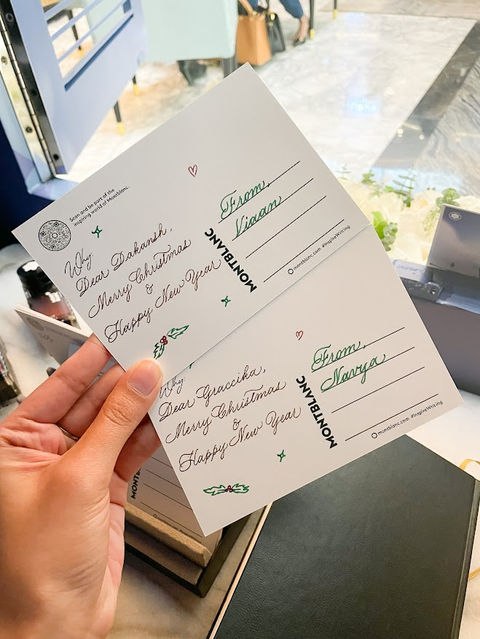 Scan and be part of the
inspiring world of Montblanc.
Why
Dear Dakansh,
Merry Christmas
&
Happy New Year
MONTBLANC
From,
Viaan
montblanc.com #InspireWriting
Why
Dear Graccika,
Merry Christmas
&
Happy New Year
MONTBLANC
From,
Navya
montblanc.com #InspireWriting